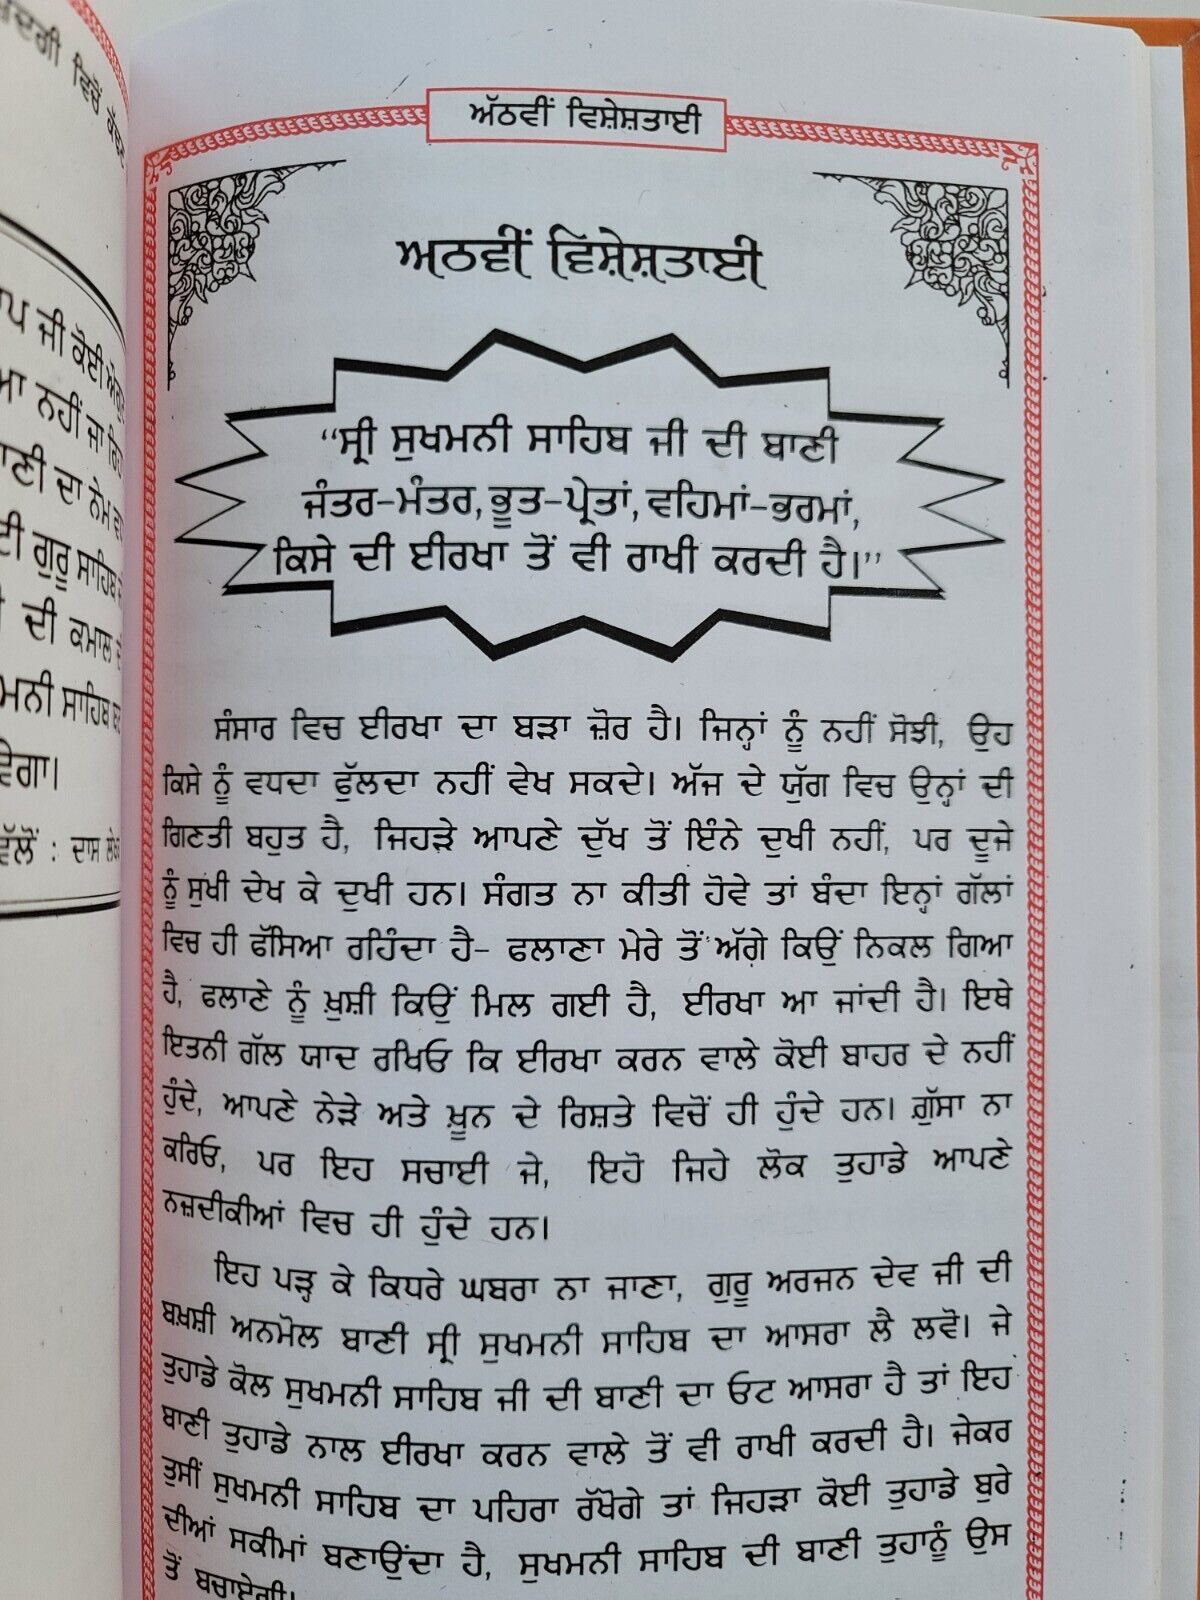 ਅੱਠਵੀਂ ਵਿਸ਼ੇਸ਼ਤਾਈ
ਅਠਵੀਂ ਵਿਸ਼ੇਸ਼ਤਾਈ
“ਸ੍ਰੀ ਸੁਖਮਨੀ ਸਾਹਿਬ ਜੀ ਦੀ ਬਾਣੀ
ਜੰਤਰ-ਮੰਤਰ, ਭੂਤ-ਪ੍ਰੇਤਾਂ, ਵਹਿਮਾਂ-ਭਰਮਾਂ,
ਕਿਸੇ ਦੀ ਈਰਖਾ ਤੋਂ ਵੀ ਰਾਖੀ ਕਰਦੀ ਹੈ।”
ਸੰਸਾਰ ਵਿਚ ਈਰਖਾ ਦਾ ਬੜਾ ਜ਼ੋਰ ਹੈ। ਜਿਨ੍ਹਾਂ ਨੂੰ ਨਹੀਂ ਸੋਝੀ, ਉਹ
ਕਿਸੇ ਨੂੰ ਵਧਦਾ ਫੁੱਲਦਾ ਨਹੀਂ ਵੇਖ ਸਕਦੇ। ਅੱਜ ਦੇ ਯੁੱਗ ਵਿਚ ਉਨ੍ਹਾਂ ਦੀ
ਗਿਣਤੀ ਬਹੁਤ ਹੈ, ਜਿਹੜੇ ਆਪਣੇ ਦੁੱਖ ਤੋਂ ਇੰਨੇ ਦੁਖੀ ਨਹੀਂ, ਪਰ ਦੂਜੇ
ਨੂੰ ਸੁਖੀ ਦੇਖ ਕੇ ਦੁਖੀ ਹਨ। ਸੰਗਤ ਨਾ ਕੀਤੀ ਹੋਵੇ ਤਾਂ ਬੰਦਾ ਇਨ੍ਹਾਂ ਗੱਲਾਂ
ਵਿਚ ਹੀ ਫੱਸਿਆ ਰਹਿੰਦਾ ਹੈ- ਫਲਾਣਾ ਮੇਰੇ ਤੋਂ ਅੱਗੇ ਕਿਉਂ ਨਿਕਲ ਗਿਆ
ਹੈ, ਫਲਾਣੇ ਨੂੰ ਖ਼ੁਸ਼ੀ ਕਿਉਂ ਮਿਲ ਗਈ ਹੈ, ਈਰਖਾ ਆ ਜਾਂਦੀ ਹੈ। ਇਥੇ
ਇਤਨੀ ਗੱਲ ਯਾਦ ਰਖਿਓ ਕਿ ਈਰਖਾ ਕਰਨ ਵਾਲੇ ਕੋਈ ਬਾਹਰ ਦੇ ਨਹੀਂ
ਹੁੰਦੇ, ਆਪਣੇ ਨੇੜੇ ਅਤੇ ਖ਼ੂਨ ਦੇ ਰਿਸ਼ਤੇ ਵਿਚੋਂ ਹੀ ਹੁੰਦੇ ਹਨ। ਗ਼ੁੱਸਾ ਨਾ
ਕਰਿਓ, ਪਰ ਇਹ ਸਚਾਈ ਜੇ, ਇਹੋ ਜਿਹੇ ਲੋਕ ਤੁਹਾਡੇ ਆਪਣੇ
ਨਜ਼ਦੀਕੀਆਂ ਵਿਚ ਹੀ ਹੁੰਦੇ ਹਨ।
ਇਹ ਪੜ੍ਹ ਕੇ ਕਿਧਰੇ ਘਬਰਾ ਨਾ ਜਾਣਾ, ਗੁਰੂ ਅਰਜਨ ਦੇਵ ਜੀ ਦੀ
ਬਖ਼ਸ਼ੀ ਅਨਮੋਲ ਬਾਣੀ ਸ੍ਰੀ ਸੁਖਮਨੀ ਸਾਹਿਬ ਦਾ ਆਸਰਾ ਲੈ ਲਵੋ। ਜੇ
ਤੁਹਾਡੇ ਕੋਲ ਸੁਖਮਨੀ ਸਾਹਿਬ ਜੀ ਦੀ ਬਾਣੀ ਦਾ ਓਟ ਆਸਰਾ ਹੈ ਤਾਂ ਇਹ
ਬਾਣੀ ਤੁਹਾਡੇ ਨਾਲ ਈਰਖਾ ਕਰਨ ਵਾਲੇ ਤੋਂ ਵੀ ਰਾਖੀ ਕਰਦੀ ਹੈ। ਜੇਕਰ
ਤੁਸੀਂ ਸੁਖਮਨੀ ਸਾਹਿਬ ਦਾ ਪਹਿਰਾ ਰੱਖੋਗੇ ਤਾਂ ਜਿਹੜਾ ਕੋਈ ਤੁਹਾਡੇ ਬੁਰੇ
ਦੀਆਂ ਸਕੀਮਾਂ ਬਣਾਉਂਦਾ ਹੈ, ਸੁਖਮਨੀ ਸਾਹਿਬ ਦੀ ਬਾਣੀ ਤੁਹਾਨੂੰ ਉਸ
ਤੋਂ ਬਚਾਏਗੀ।